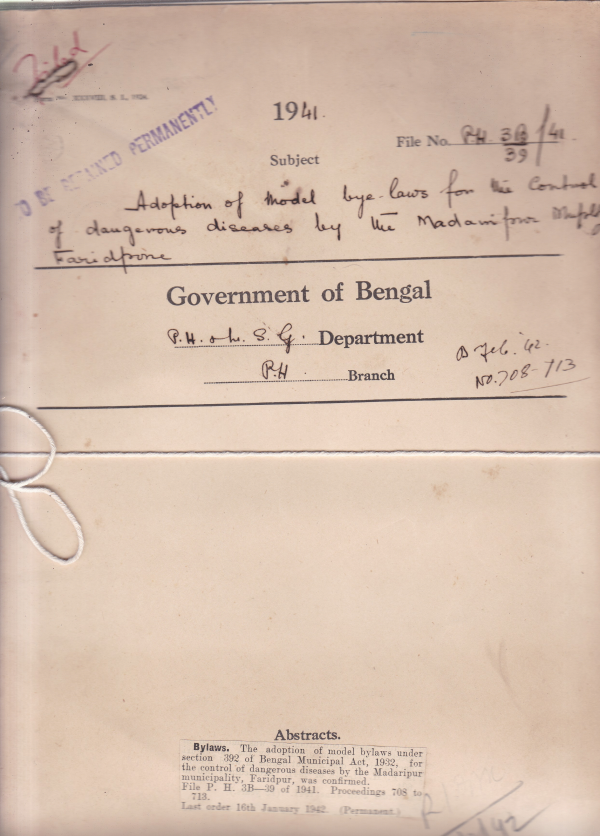 TO BE RETAINED PERMANENTLY
1941.
File No. P.H. 3B/41
39
Subject
Adoption of Model bye-laws for the Control
of dangerous diseases by the Madaripur
Faridpore
Government of Bengal
P.H. & L. S. G. Department
P.H Branch
Feb. '42.
No. 708-713
Abstracts.
Bylaws. The adoption of model bylaws under
section 392 of Bengal Municipal Act, 1932, for
the control of dangerous diseases by the Madaripur
municipality, Faridpur, was confirmed.
File P. H. 3B—39 of 1941. Proceedings 708 to
713.
Last order 16th January 1942. (Permanent.)